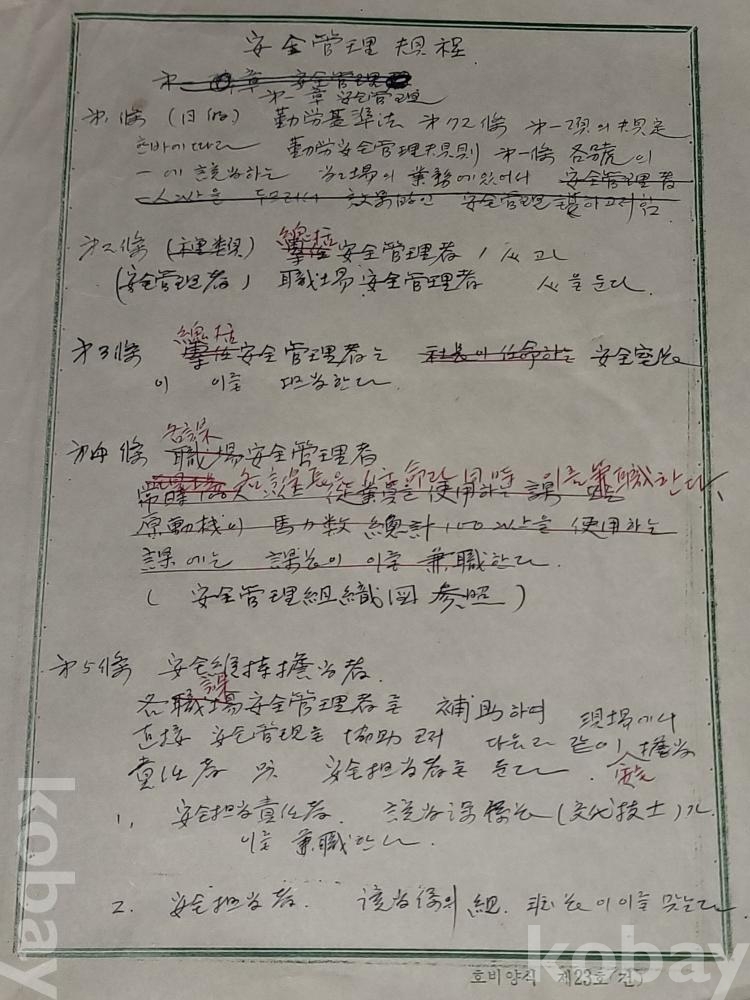 安全管理 規程
第一章 安全管理
第1條 (目的) 勤労基準法 第72條 第一項의 規定
한바에따라 勤労安全管理規則 第一條 各號의
一에 該当하는 当工場의 業務에있어서 安全管理者
安全管理
第2條 (種類) 總括 安全管理者 1人고
(安全管理者) 職場 安全管理者 人을 둔다.
第3條 總括 安全管理者는 社長이 任命하는 安全室長
이 이를 担当한다.
第4條 各課 職場 安全管理者
各課長은 任命과 同時 이를 兼職한다.
從業員을 使用하는 課
原動機의 馬力数 總計 100 以上을 使用하는
課에는 課長이 이를 兼職한다.
(安全管理組織図 参照)
第5條 安全維持擔当者.
各 課 職場 安全管理者를 補助하며 現場에서
直接 安全管理를 協助코저 다음과 같이 擔当
責任者 및 安全担当者를 둔다.
1. 安全担当責任者. 該当課 係長(交代技士)가
이를 兼職한다.
2. 安全担当者. 該当係의 組. 班長이 이를 맡는다.
호비양식 제23호(건)
kobay
kobay